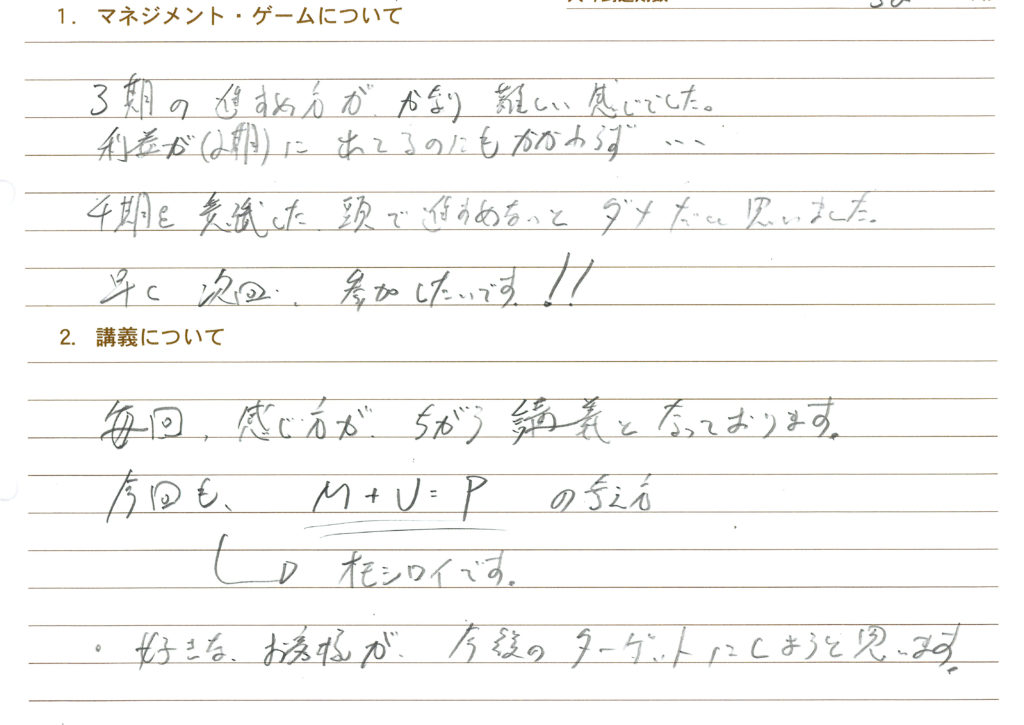 1. マネジメント・ゲームについて
3期の進すめ方が、かなり難しい感じでした。
利益が(2期)に出てるのにもかかわらず…
4期を意識した頭で進すめないとダメだと思いました。
早く次回、参加したいです!!
2. 講義について
毎回、感じ方が、ちがう講義となっております。
今回も、M+U=Pの考え方
オモシロイです。
・好きな、お客様が、今後のターゲットにしようと思います。